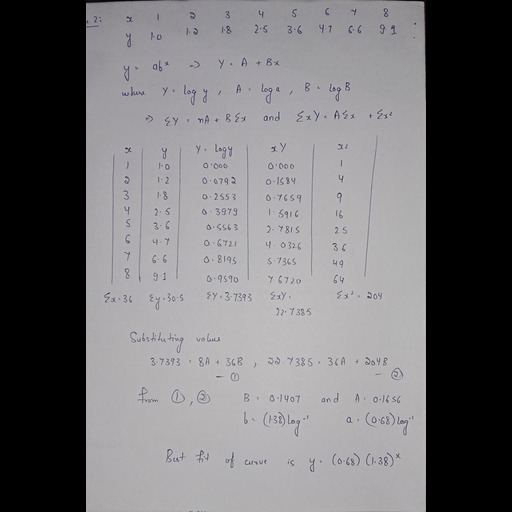 2: x 1 2 3 4 5 6 7 8
y 1.0 1.2 1.8 2.5 3.6 4.7 6.6 9.1
y = ab^x => Y = A + Bx
where Y = log y , A = log a , B = log B
=> ΣY = nA + BΣx and ΣxY = AΣx + Σx²
x y Y = log y xY x²
1 1.0 0.000 0.000 1
2 1.2 0.0792 0.1584 4
3 1.8 0.2553 0.7659 9
4 2.5 0.3979 1.5916 16
5 3.6 0.5563 2.7815 25
6 4.7 0.6721 4.0326 36
7 6.6 0.8195 5.7365 49
8 9.1 0.9590 7.6720 64
Σx = 36 Σy = 30.5 ΣY = 3.7393 ΣxY = Σx² = 204
22.7385
Substituting values
3.7393 = 8A + 36B , 22.7385 = 36A + 204B
- ① - ②
from ①, ② B = 0.1407 and A = 0.1656
b = (1.38) log⁻¹ a = (0.68) log⁻¹
Best fit of curve is y = (0.68) (1.38)^x